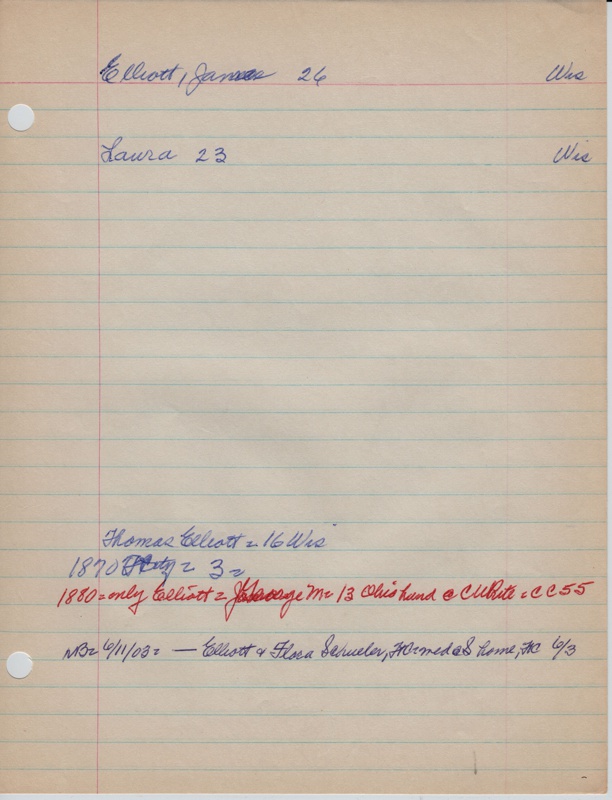 Elliott, James 26 Wis
Laura 23 Wis
Thomas Elliott = 16 Wis
1870 = 3 =
1880 = only Elliott = George M = 13 Ohio hund @ C White = CC 55
NB = 6/11/03 = — Elliott & Flora Schueler, FC = med @ S home, FC 6/3